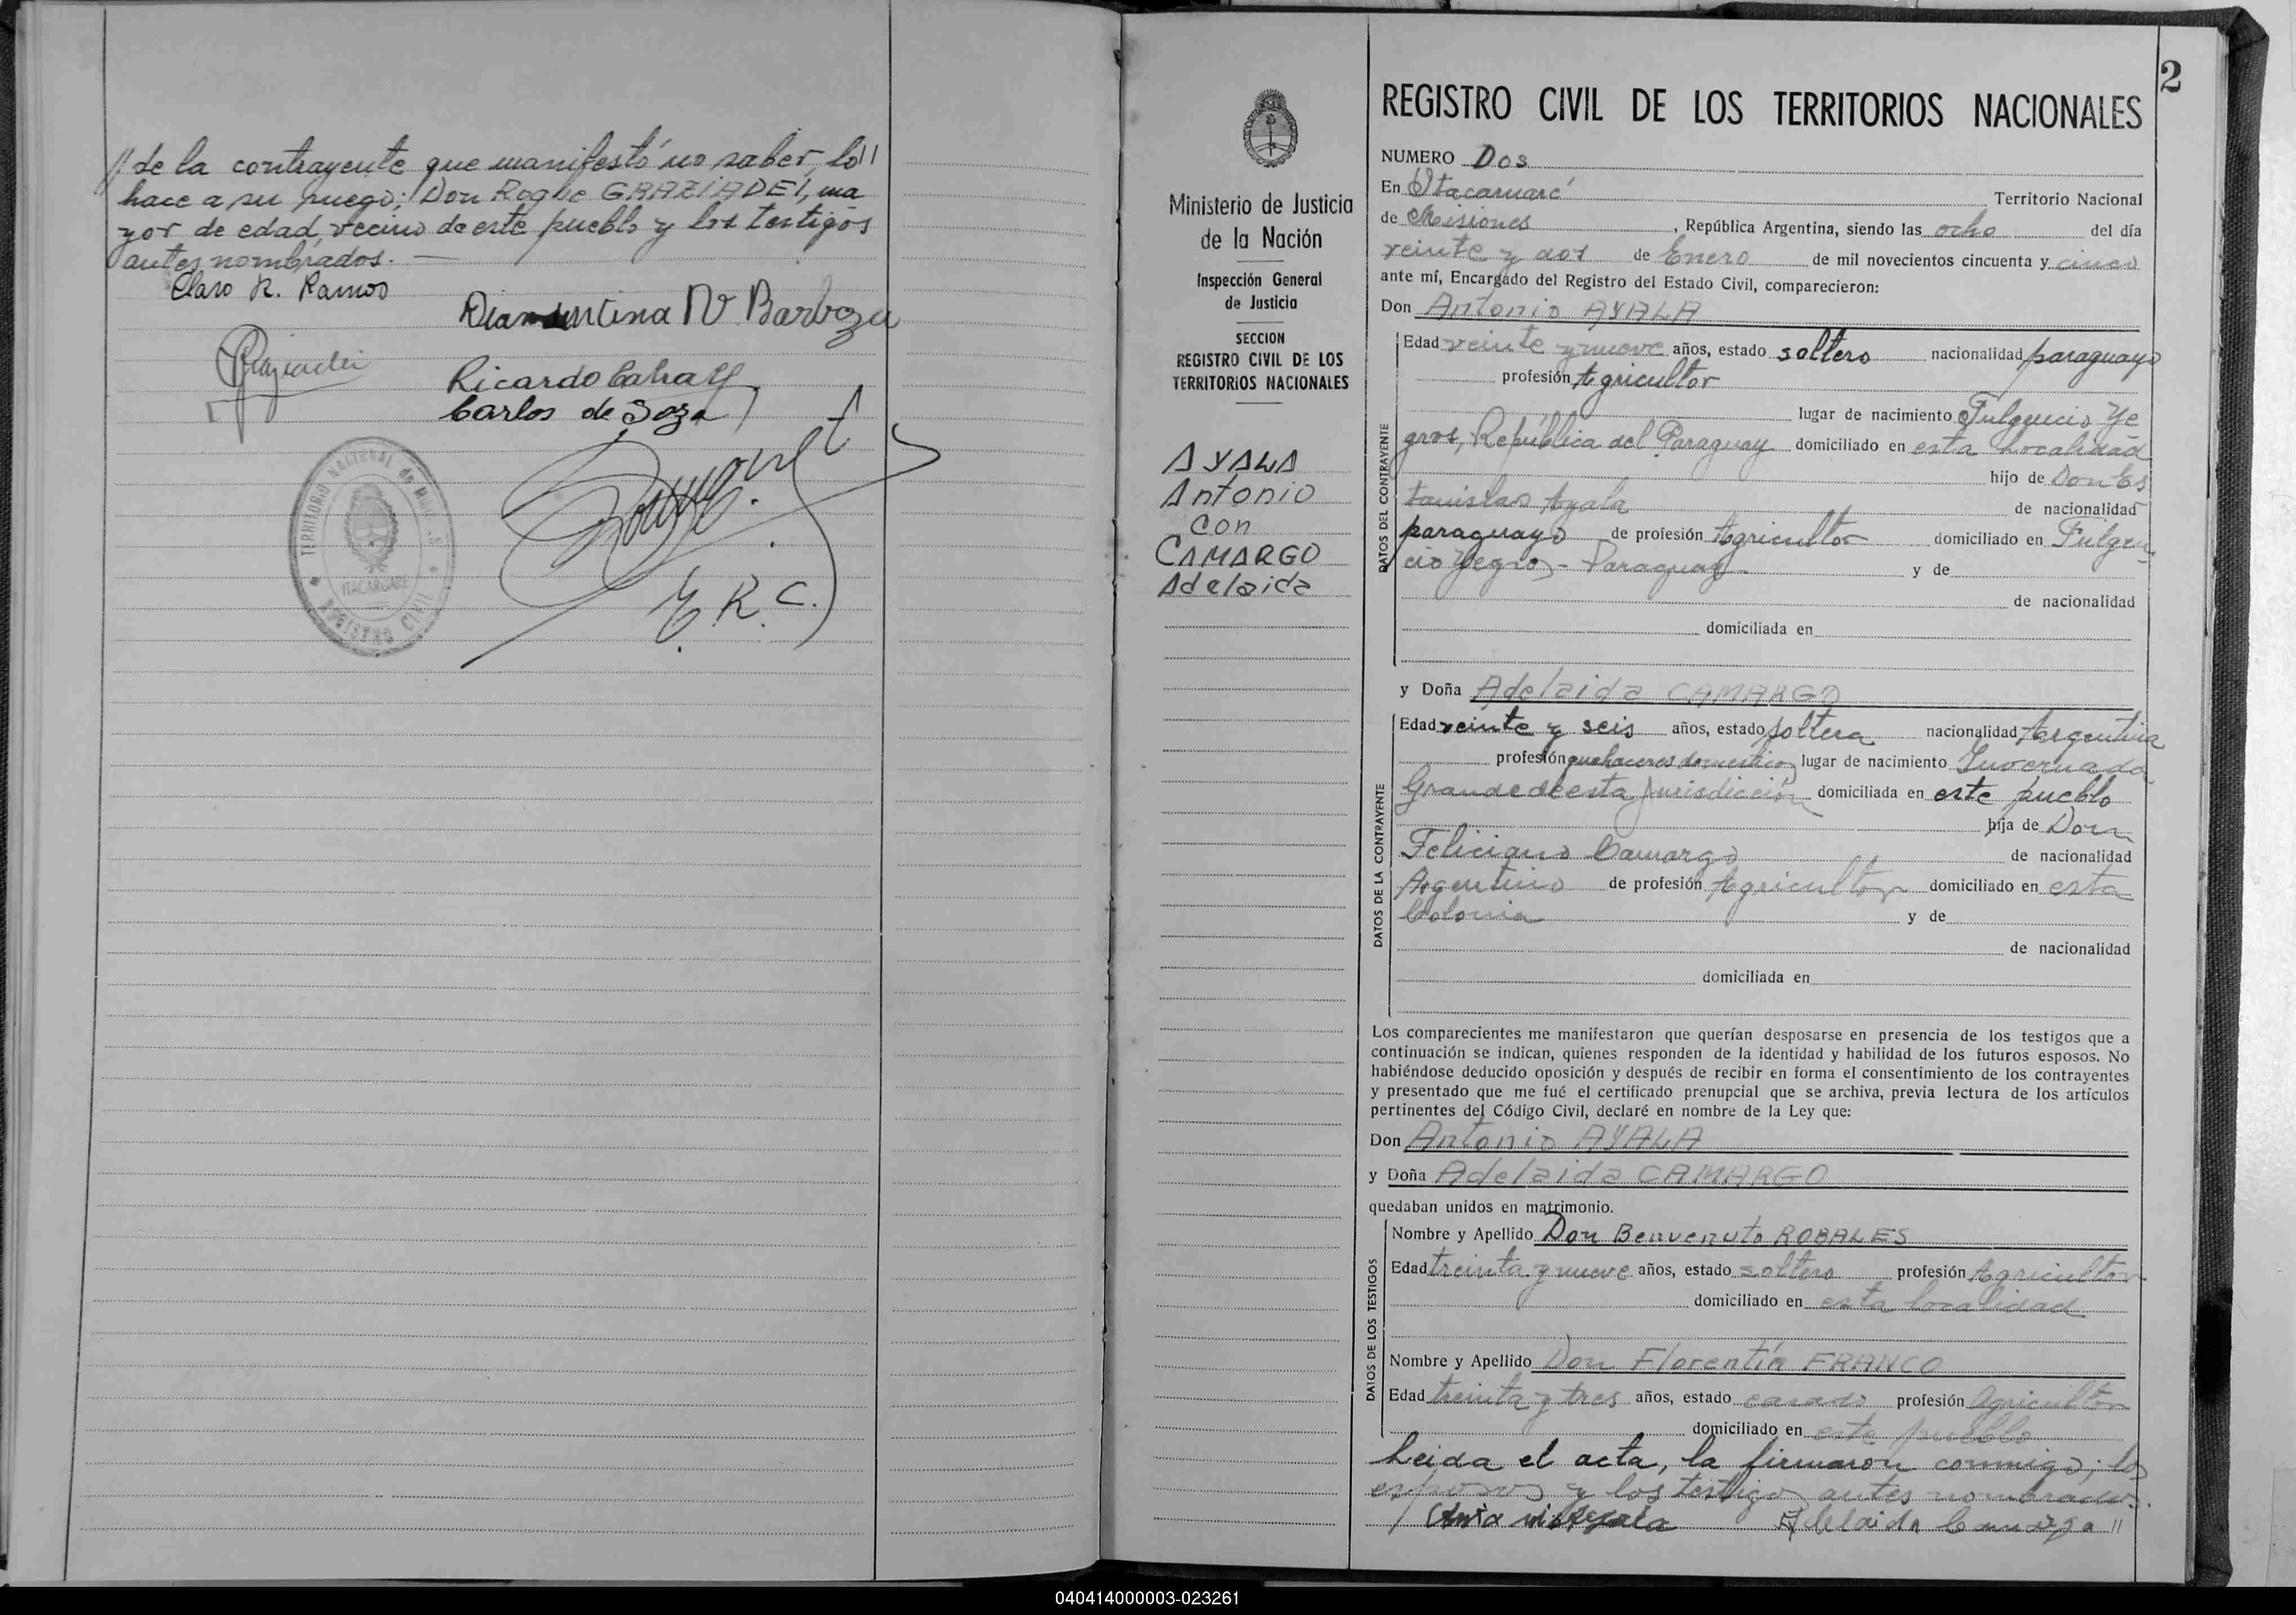 // de la contrayente que manifestó no saber, lo //
hace a su ruego; Don Roque GRAZIADEI, ma
yor de edad, vecino de este pueblo y los testigos
antes nombrados. —
Claro R. Ramos
Diamantina N Barboza
Ricardo
Carlos de Soza
E. R. C.
TERRITORIO NACIONAL de Mnes.
ITACARUARE
REGISTRO CIVIL
2
Ministerio de Justicia
de la Nación
Inspección General
de Justicia
SECCION
REGISTRO CIVIL DE LOS
TERRITORIOS NACIONALES
AYALA
Antonio
Con
CAMARGO
Adelaida
REGISTRO CIVIL DE LOS TERRITORIOS NACIONALES
NUMERO Dos
En Itacaruaré Territorio Nacional
de Misiones, República Argentina, siendo las ocho del día
veinte y dos de Enero de mil novecientos cincuenta y cinco
ante mí, Encargado del Registro del Estado Civil, comparecieron:
Don Antonio AYALA
DATOS DEL CONTRAYENTE
Edad veinte y nueve años, estado soltero nacionalidad paraguayo
profesión Agricultor
lugar de nacimiento Fulgencio Ye
gros, República del Paraguay domiciliado en esta Localidad
hijo de Don Es
tanislao Ayala de nacionalidad
paraguayo de profesión Agricultor domiciliado en Fulgen
cio Yegros - Paraguay y de
de nacionalidad
domiciliada en
y Doña Adelaida CAMARGO
DATOS DE LA CONTRAYENTE
Edad veinte y seis años, estado soltera nacionalidad Argentina
profesión quehaceres domesticos lugar de nacimiento Invernada
Grande de esta Jurisdicción domiciliada en este pueblo
hija de Don
Feliciano Camargo de nacionalidad
Argentino de profesión Agricultor domiciliado en esta
Colonia y de
de nacionalidad
domiciliada en
Los comparecientes me manifestaron que querían desposarse en presencia de los testigos que a
continuación se indican, quienes responden de la identidad y habilidad de los futuros esposos. No
habiéndose deducido oposición y después de recibir en forma el consentimiento de los contrayentes
y presentado que me fué el certificado prenupcial que se archiva, previa lectura de los artículos
pertinentes del Código Civil, declaré en nombre de la Ley que:
Don Antonio AYALA
y Doña Adelaida CAMARGO
quedaban unidos en matrimonio.
DATOS DE LOS TESTIGOS
Nombre y Apellido Don Benvenuto ROBALES
Edad treinta y nueve años, estado soltero profesión Agricultor
domiciliado en esta localidad
Nombre y Apellido Don Florentín FRANCO
Edad treinta y tres años, estado casado profesión Agricultor
domiciliado en este pueblo
Leida el acta, la firmaron conmigo; los
esposos y los testigos antes nombrados.
Adelaida //
040414000003-023261